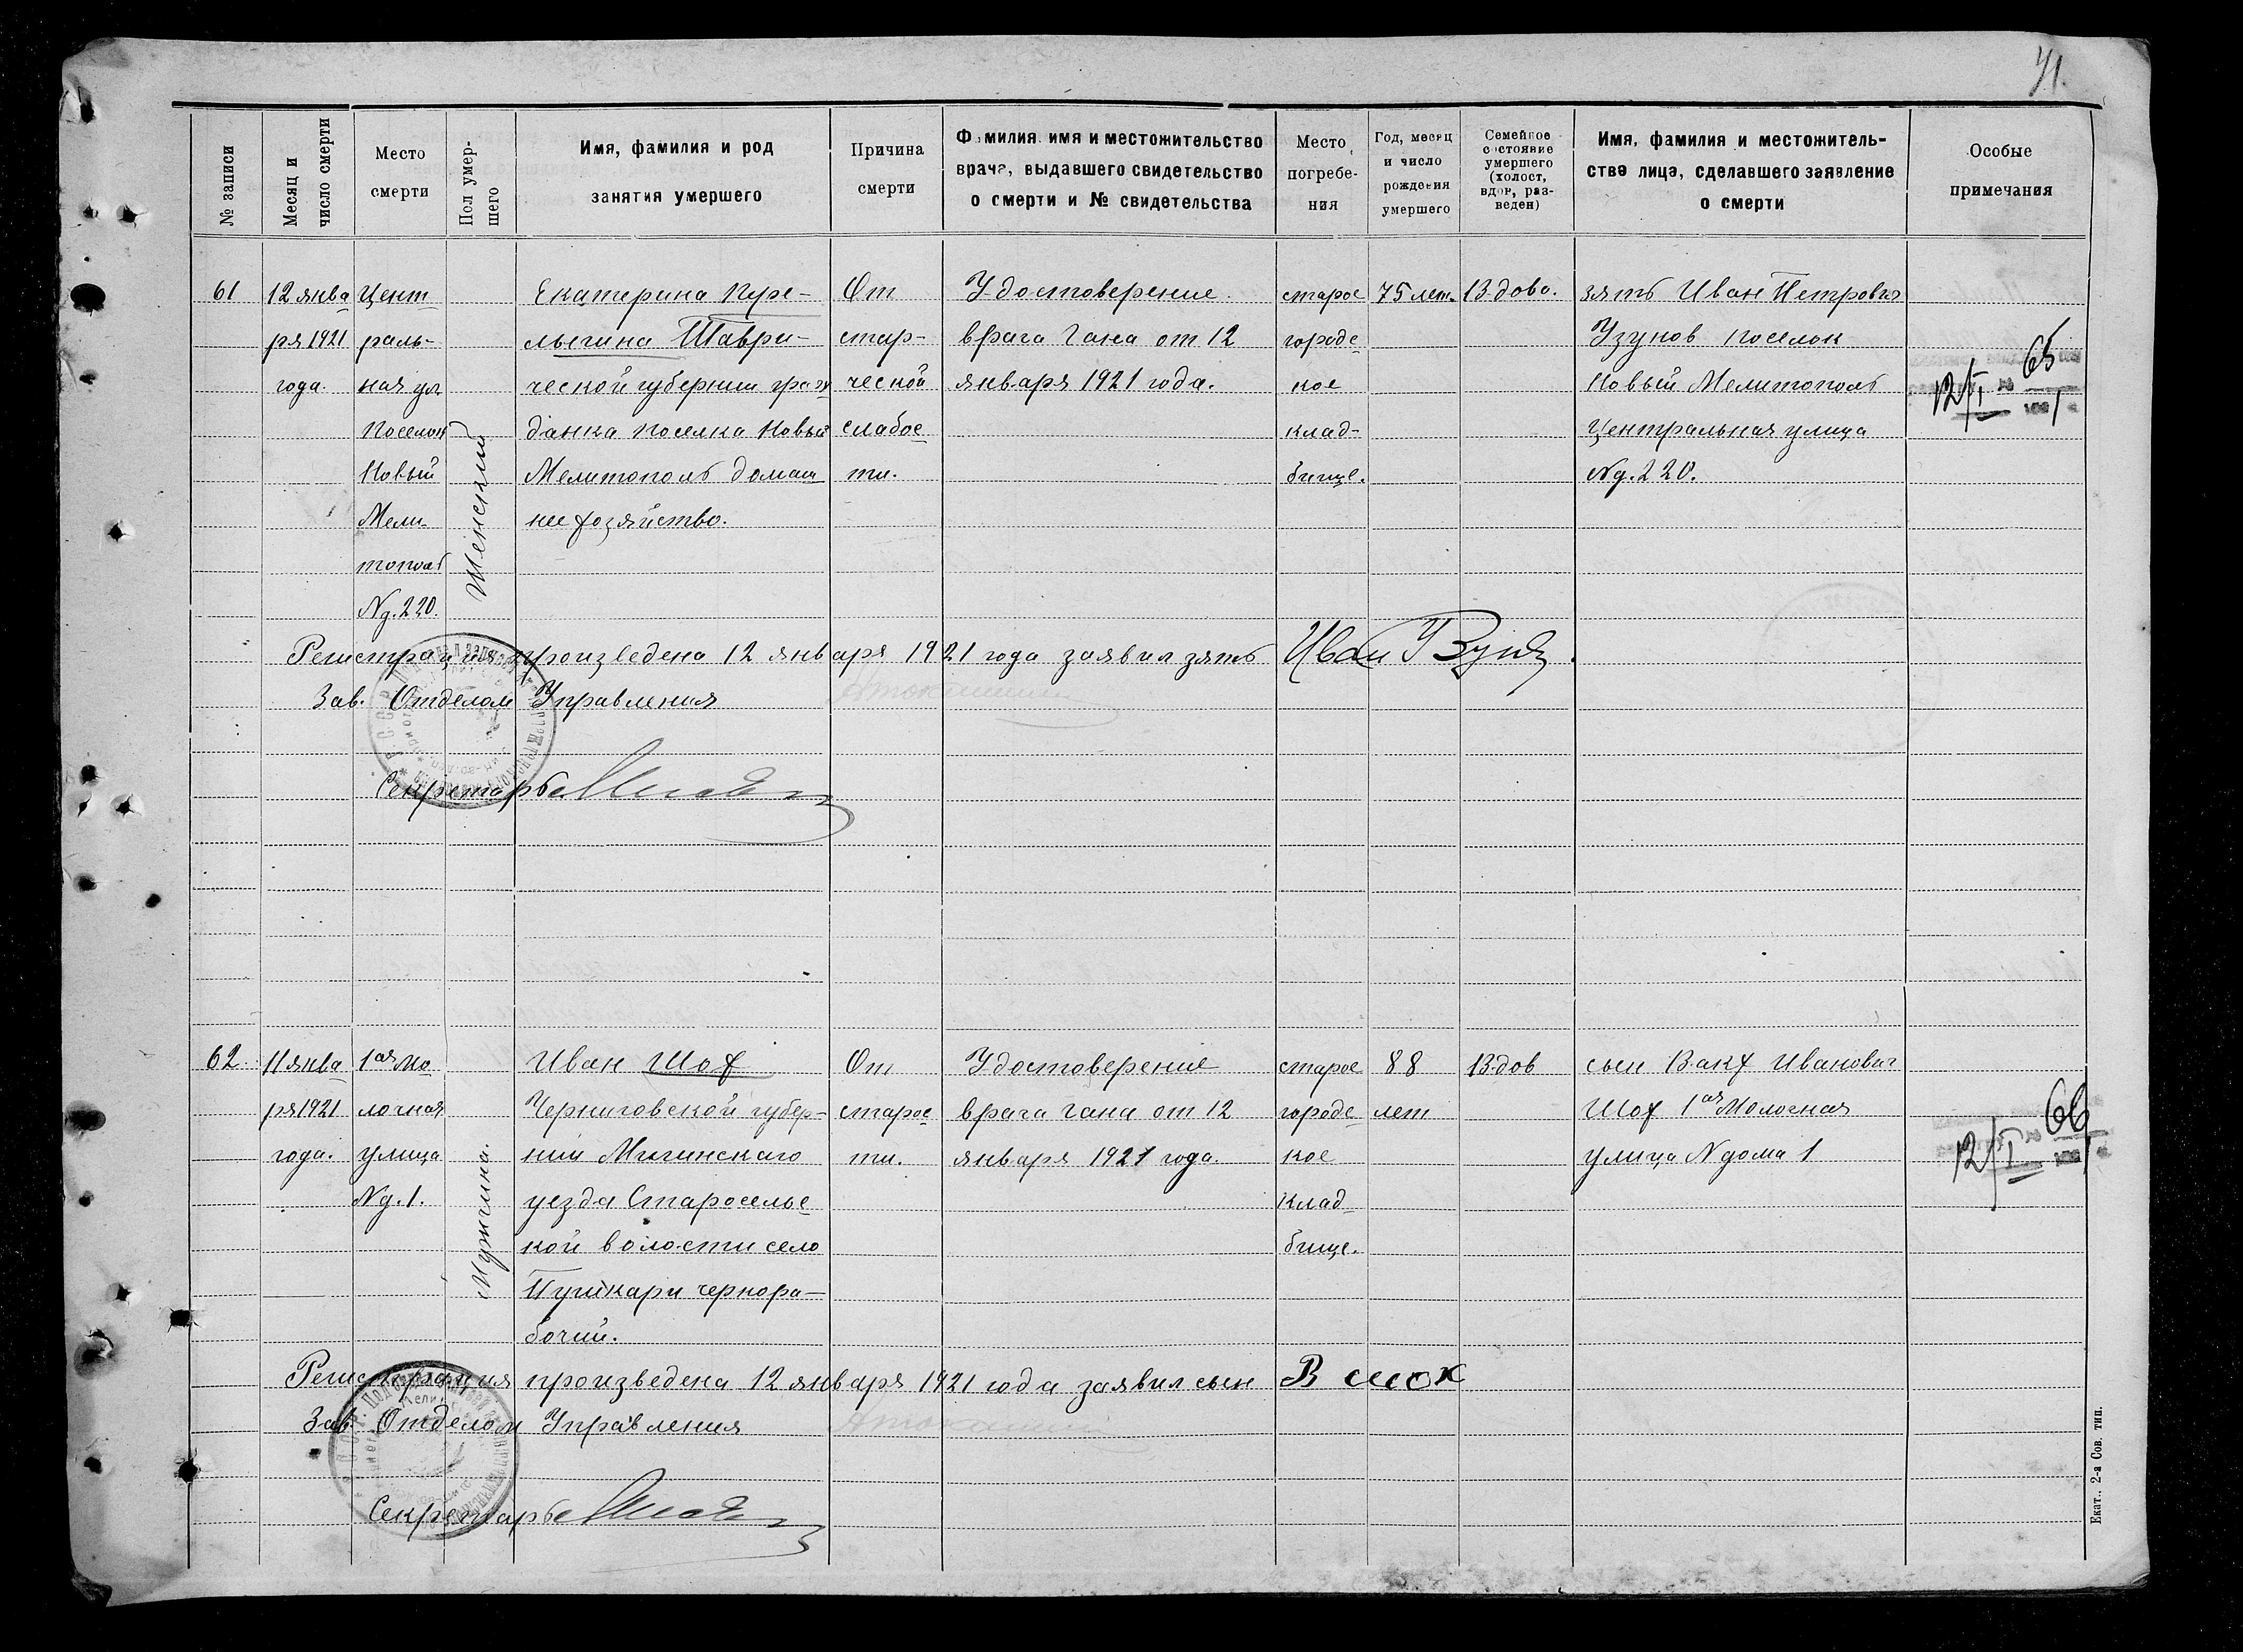 71.
№ записи
Месяц и число смерти
Место смерти
Пол умер-
шего
Имя, фамилия и род
занятия умершего
Причина
смерти
Фамилия имя и местожительство
врача, выдавшего свидетельство
о смерти и № свидетельства
Место
погребе-
ния
Год, месяц
и число
рождения
умершего
Семейное
состояние
умершего
(холост,
вдов, раз-
веден)
Имя, фамилия и местожитель-
ство лица, сделавшего заявление
о смерти
Особые
примечания
61
12 янва
ря 1921
года.
Цент
раль-
ная ул.
поселок
Новый
Мели-
тополь
Nд. 220.
Женский
Екатерина Пере-
лыгина Таври-
ческой губернии граж
данка поселка Новый
Мелитополь домаш
нее хозяйство.
От
стар-
ческой
слабос
ти.
Удостоверение
врача Гана от 12
января 1921 года.
старое
городс
кое
клад-
бище.
75 лет.
Вдова.
зять Иван Петрович
Узунов поселок
Новый Мелитополь
Центральная улица
Nд. 220.
12/I 65
Регистрация произведена 12 января 1921 года заявил зять
Зав. Отделом Управления
Секретарь
62
11 янва
ря 1921
года.
1ая Мо
лочная
улица
Nд. 1.
Мужчина.
Иван Шох
Черниговской губер-
нии Мглинского
уезда Старосельс
кой волости село
Пушкари чернора-
бочий.
От
старос
ти.
Удостоверение
врача Гана от 12
января 1921 года.
старое
городс
кое
клад
бище.
88
лет
Вдов
сын Вакх Иванович
Шох 1ая Молочная
улица N дома 1
12/I 66
Регистрация произведена 12 января 1921 года заявил сын В шох
Зав. Отделом Управления
Секретарь
Екат., 2-а Сов. тип.